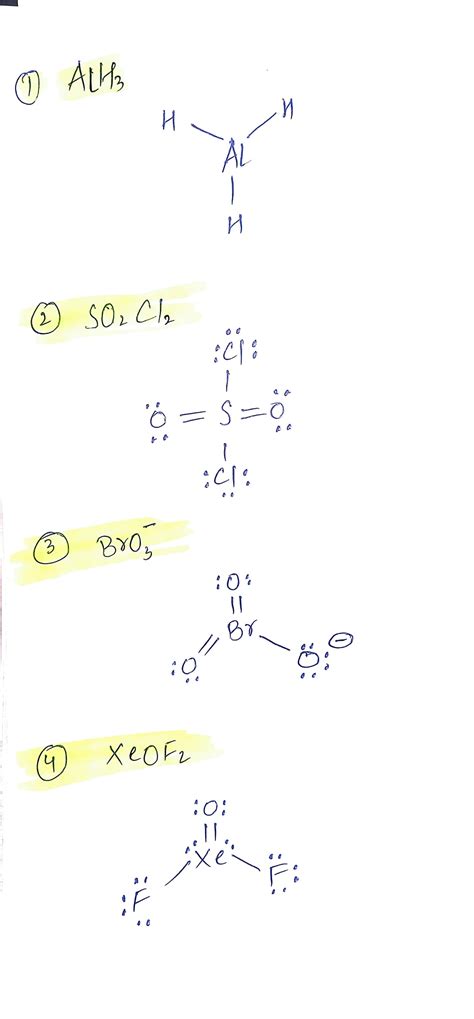 ① AlH₃
H H
Al
H
② SO₂Cl₂
:Cl:
O = S = O
:Cl:
③ BrO₃⁻
:O:
Br
:O O: ⊖
④ XeOF₂
:O:
Xe
:F F: